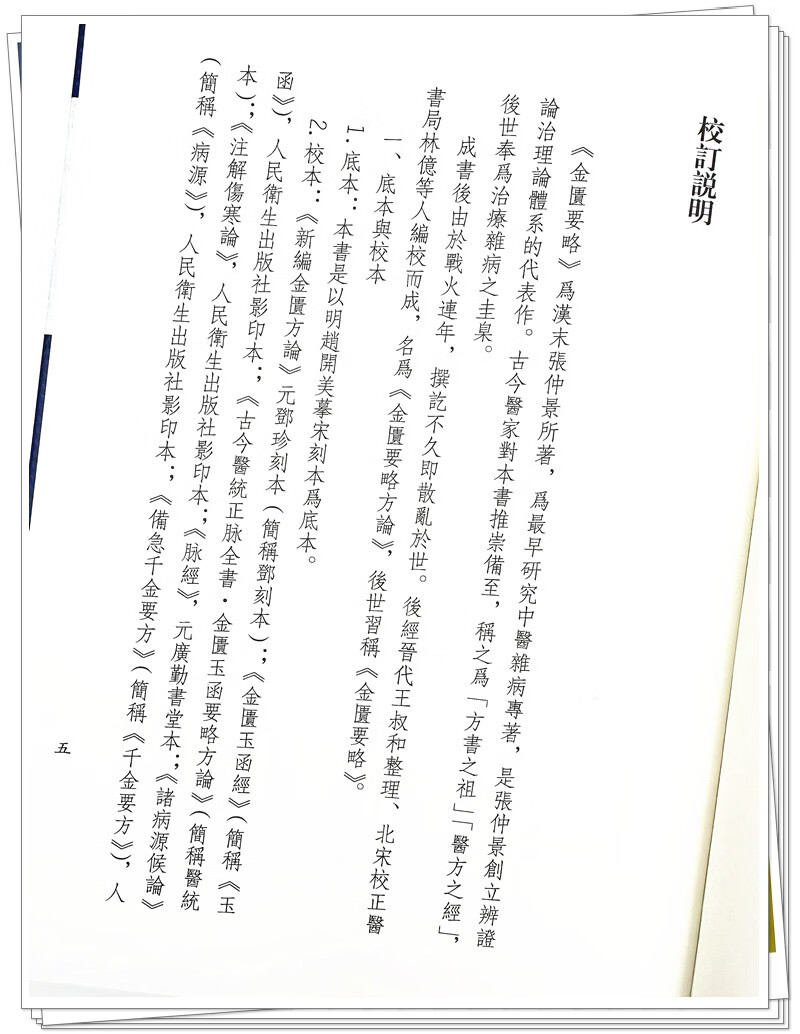 校訂説明
《金匱要略》爲漢末張仲景所著，爲最早研究中醫雜病專著，是張仲景創立辨證
論治理論體系的代表作。古今醫家對本書推崇備至，稱之爲「方書之祖」「醫方之經」，
後世奉爲治療雜病之圭臬。
成書後由於戰火連年，撰訖不久即散亂於世。後經晉代王叔和整理、北宋校正醫
書局林億等人編校而成，名爲《金匱要略方論》，後世習稱《金匱要略》。
一、底本與校本
1. 底本：本書是以明趙開美摹宋刻本爲底本。
2. 校本：《新編金匱方論》元鄧珍刻本（簡稱鄧刻本）；《金匱玉函經》（簡稱《玉
函》），人民衛生出版社影印本；《古今醫統正脉全書·金匱玉函要略方論》（簡稱醫統
本）；《注解傷寒論》，人民衛生出版社影印本；《脉經》，元廣勤書堂本；《諸病源候論》
（簡稱《病源》），人民衛生出版社影印本；《備急千金要方》（簡稱《千金要方》），人
五